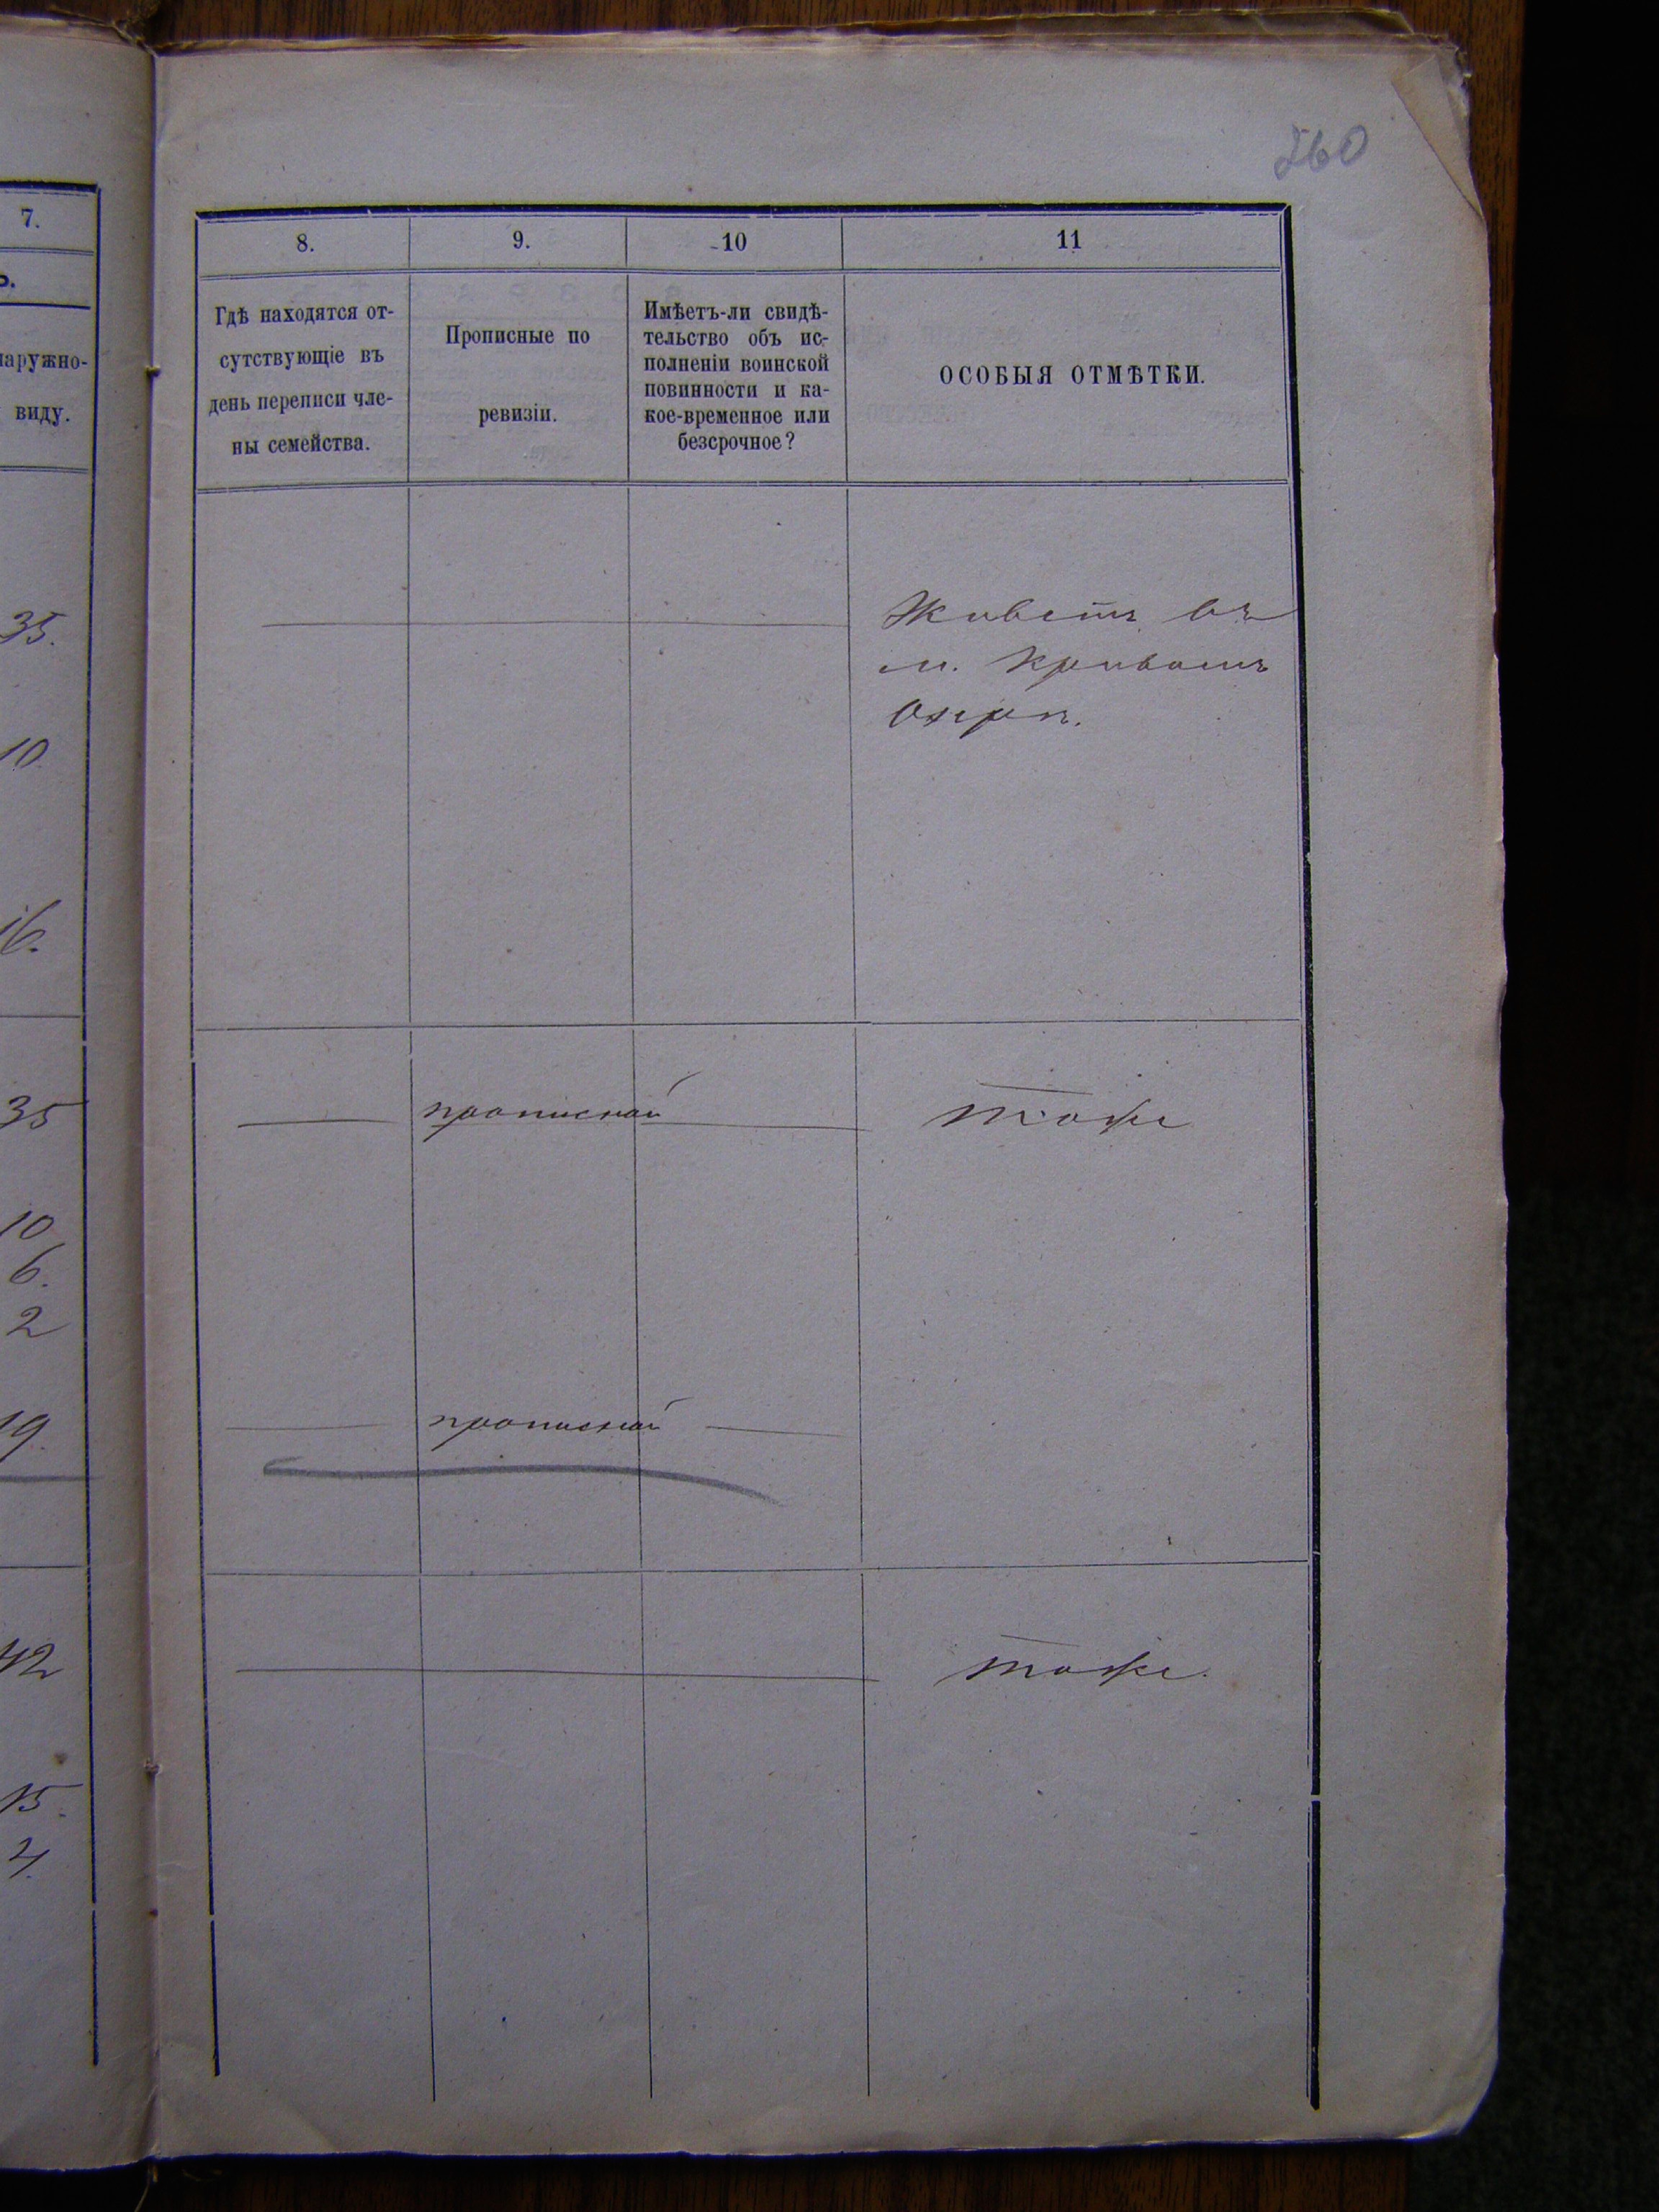 260
7.
ь.
наружно-
виду.
35.
10
16.
35
10
6.
2
19.
42
15.
4.
8.
9.
10
11
Гдѣ находятся от-
сутствующіе въ
день переписи чле-
ны семейства.
Прописные по
ревизіи.
Имѣетъ-ли свидѣ-
тельство объ ис-
полненіи воинской
повинности и ка-
кое-временное или
безсрочное?
ОСОБЫЯ ОТМѢТКИ.
Живетъ въ
м. Кривомъ
Озерѣ.
прописной
тоже
прописной
тоже.